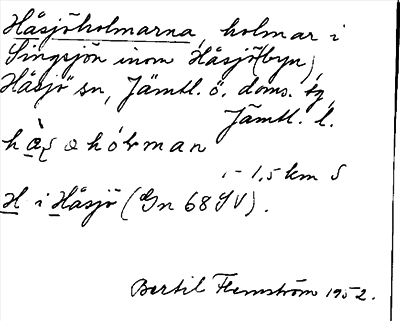 Håsjöholmarna, holmar i
Singsjön inom Håsjö(byn),
Håsjö sn, Jämtl. ö. doms. tg,
Jämtl. l.
hólman
1,5 km S
H i Håsjö (Gn 68 SV).
Bertil Flemström 1952.